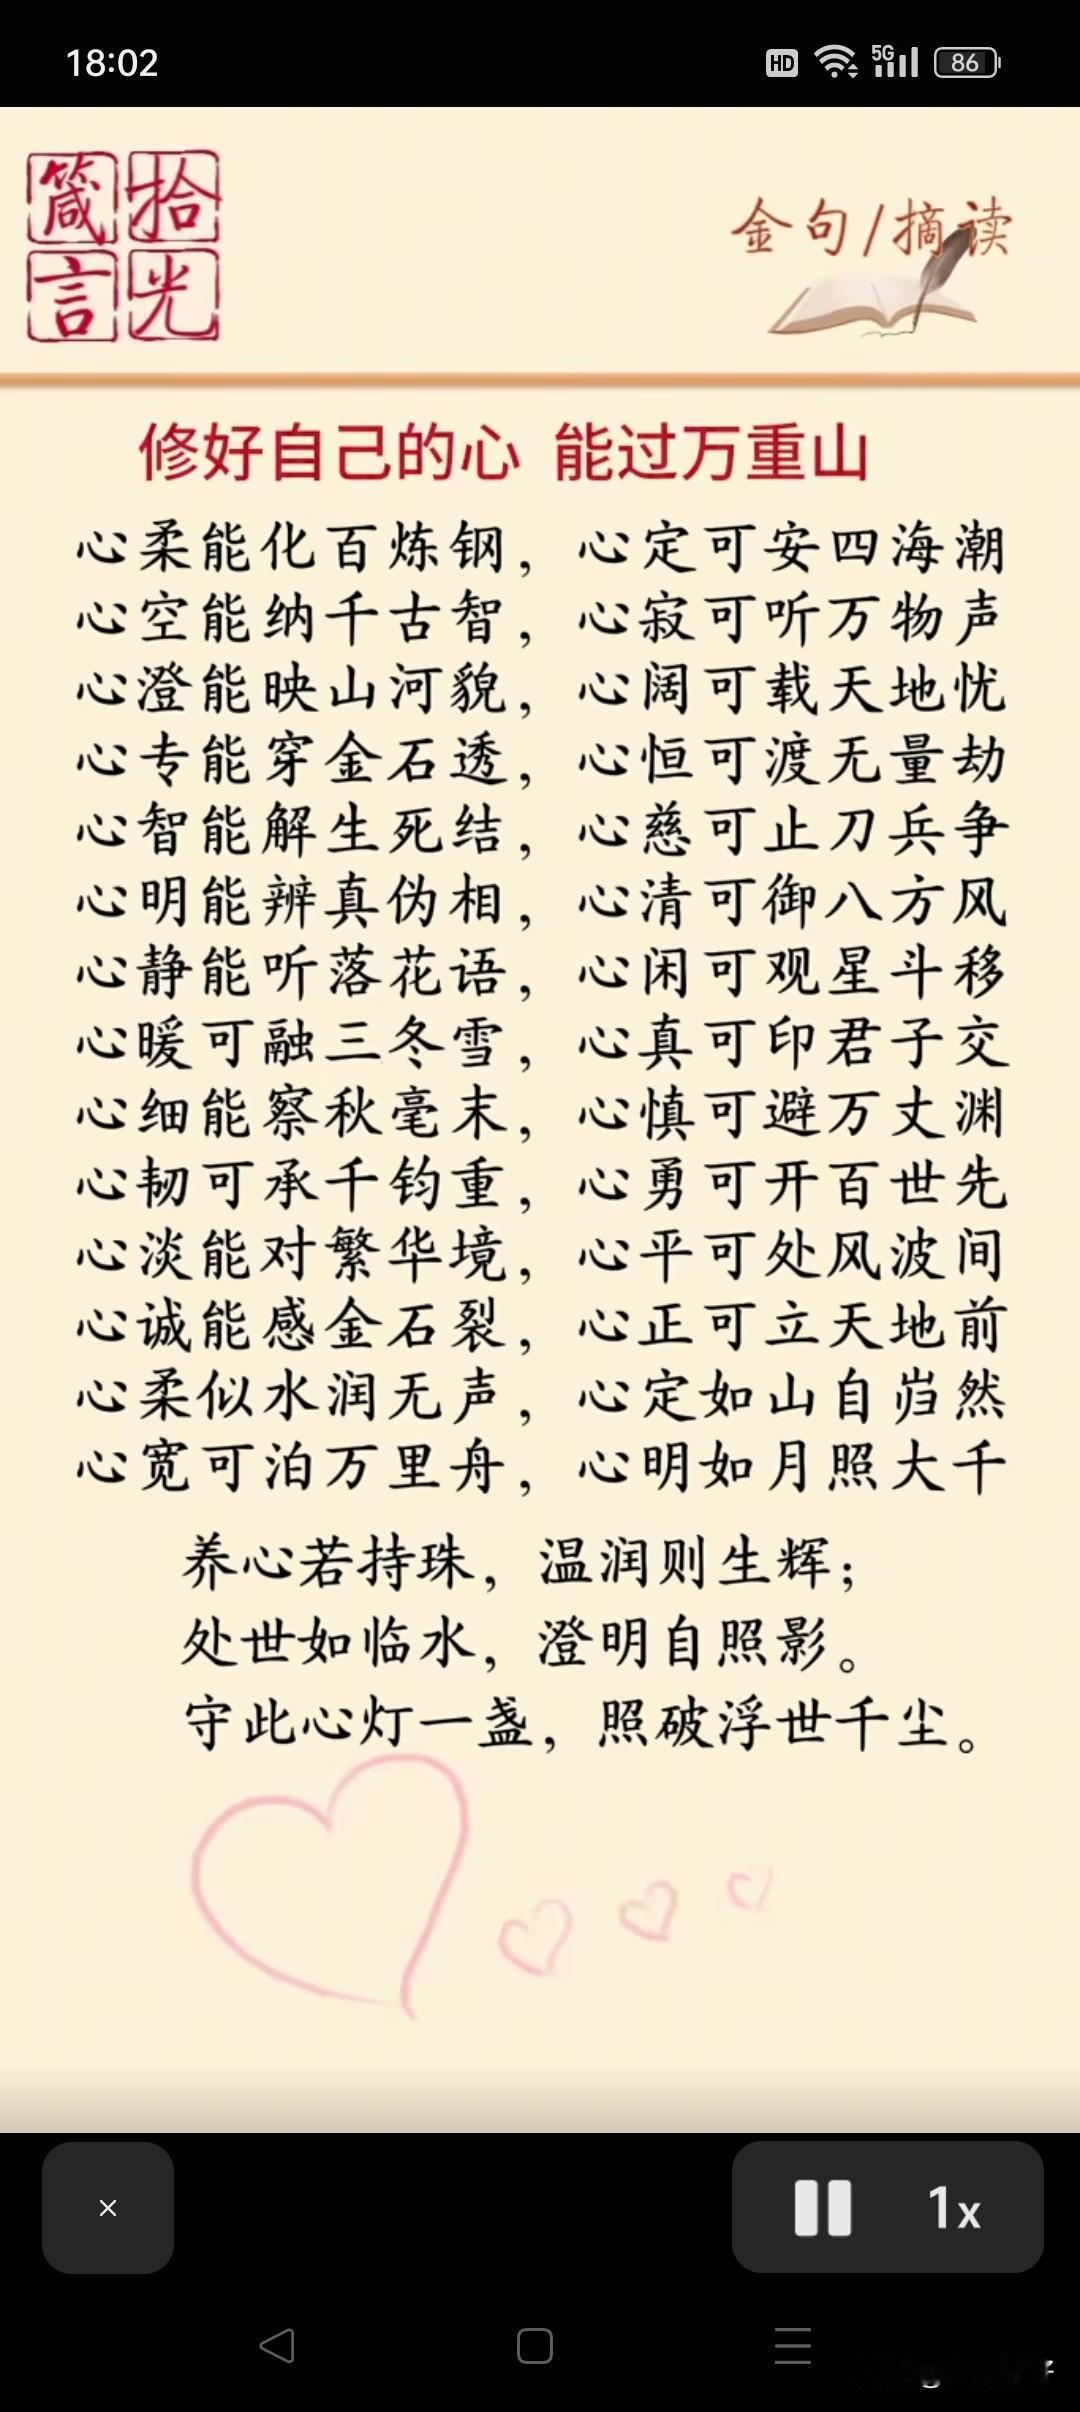 18:02
HD 5G 86
拾光
箴言
金句/摘读
修好自己的心 能过万重山
心柔能化百炼钢，心定可安四海潮
心空能纳千古智，心寂可听万物声
心澄能映山河貌，心阔可载天地忧
心专能穿金石透，心恒可渡无量劫
心智能解生死结，心慈可止刀兵争
心明能辨真伪相，心清可御八方风
心静能听落花语，心闲可观星斗移
心暖可融三冬雪，心真可印君子交
心细能察秋毫末，心慎可避万丈渊
心韧可承千钧重，心勇可开百世先
心淡能对繁华境，心平可处风波间
心诚能感金石裂，心正可立天地前
心柔似水润无声，心定如山自岿然
心宽可泊万里舟，心明如月照大千
养心若持珠，温润则生辉；
处世如临水，澄明自照影。
守此心灯一盏，照破浮世千尘。
1x